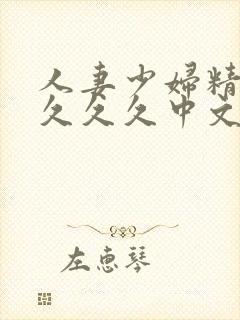 人妻少婦精
久久久中文
左惠琴